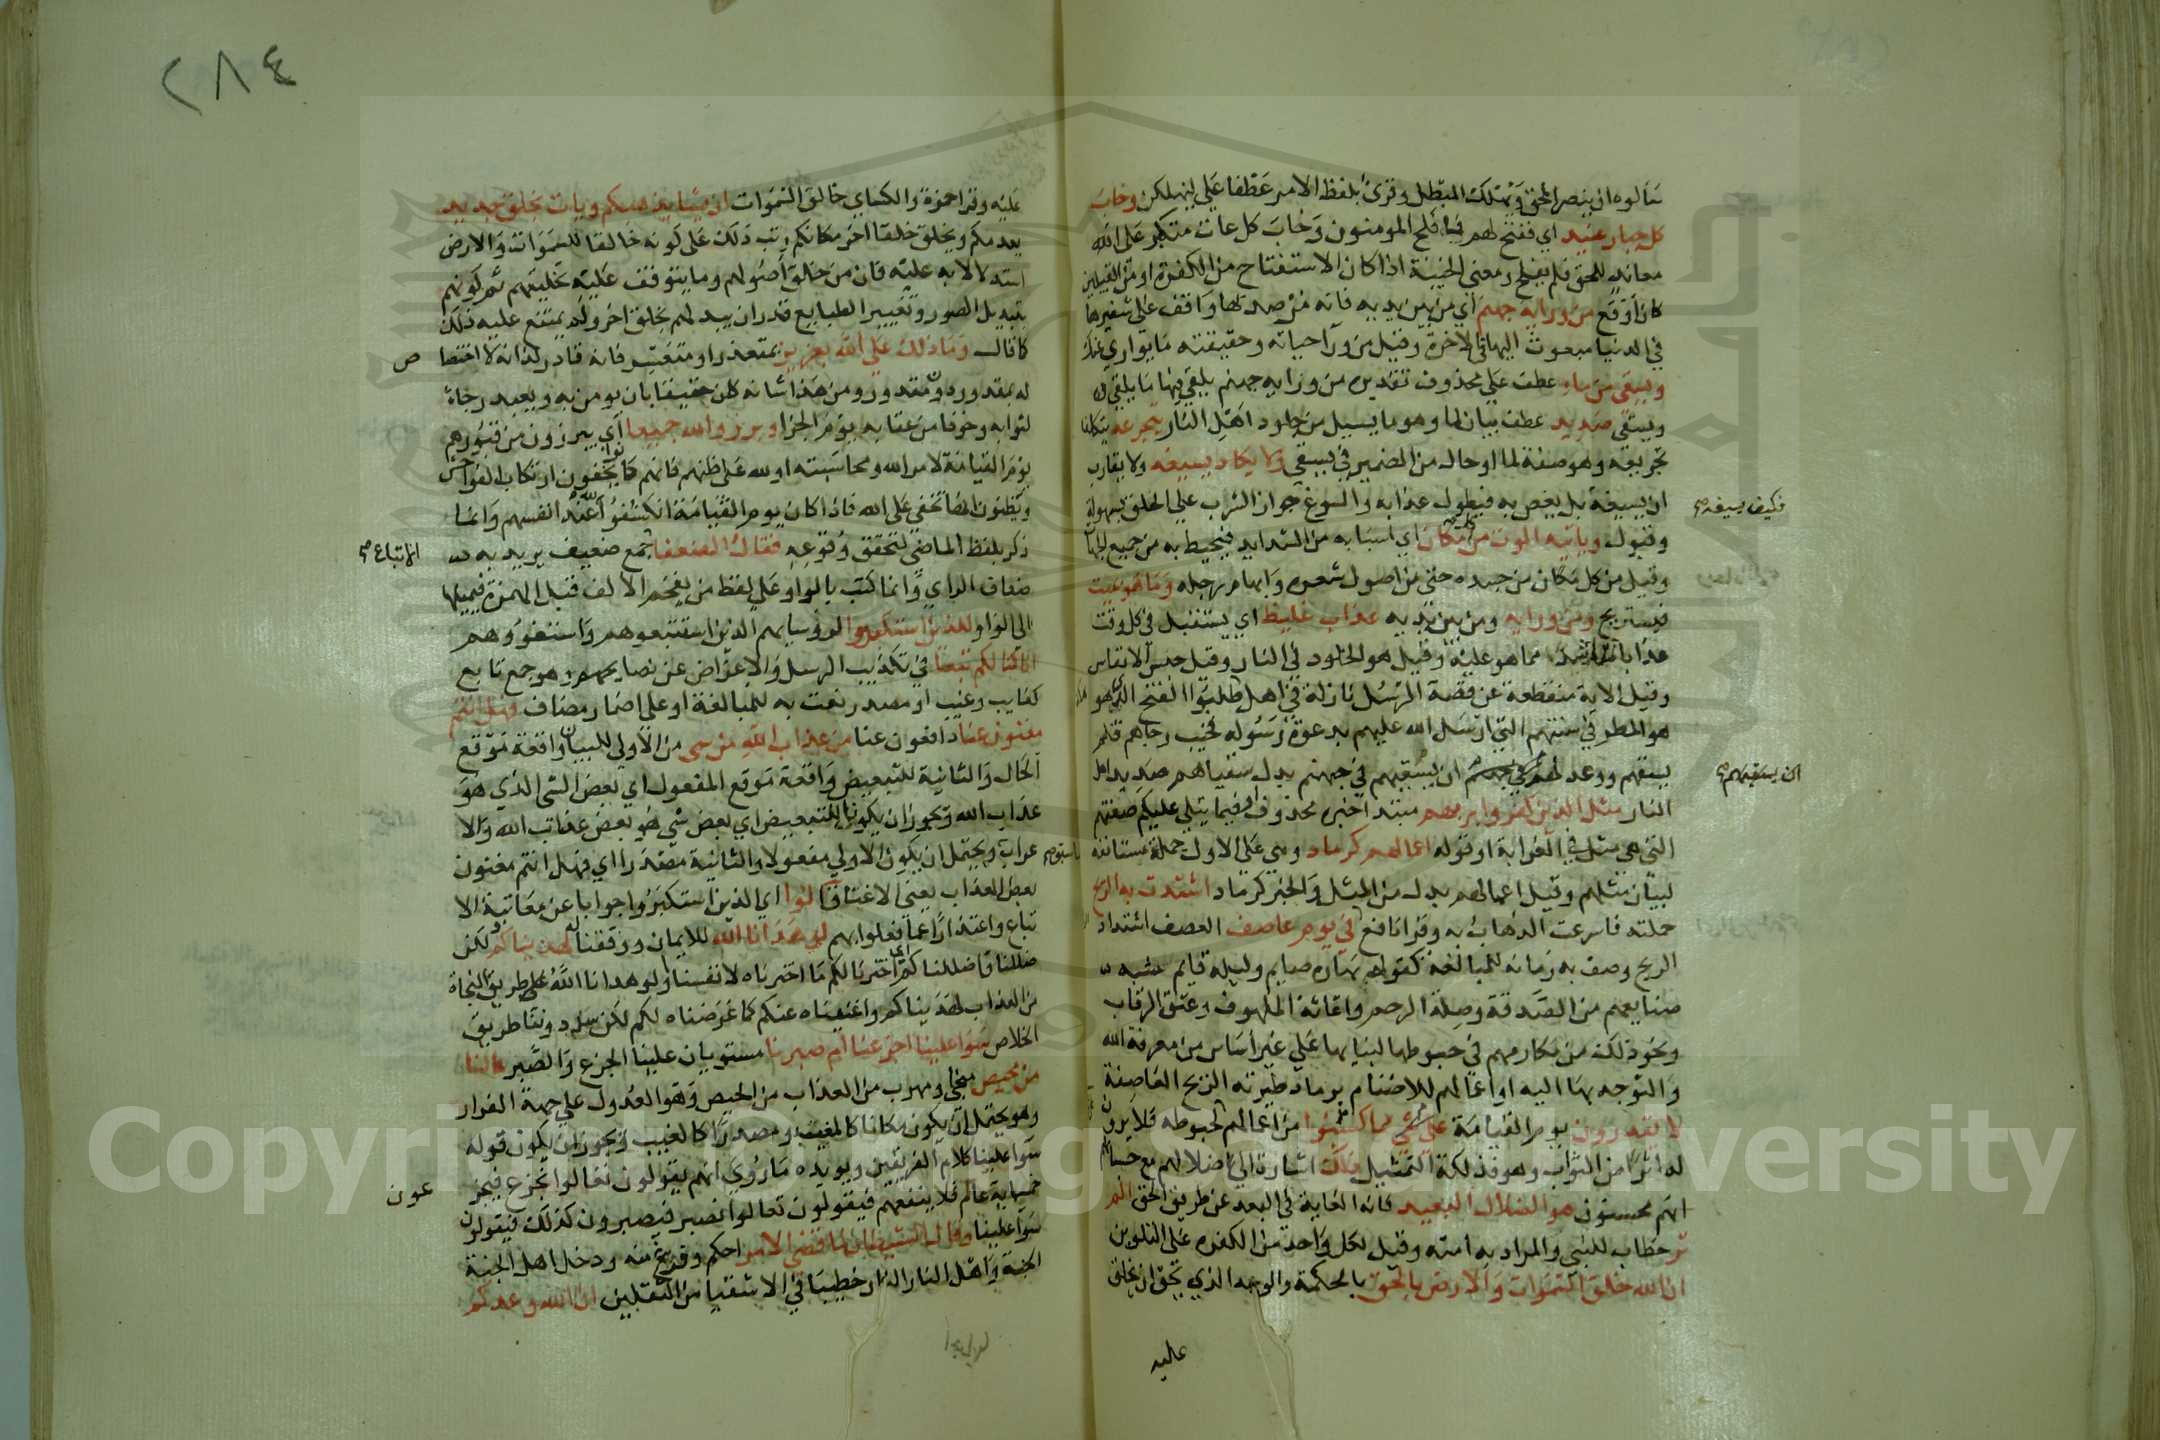 سألوه ان ينصر المحق ويهلك المبطل وقرئ بلفظ الامر عطفا على ليهلكن وخاب
كل جبار عنيد اي ففتح لهم فافلح المومنون وخاب كل عات متكبر على الله
معاند للحق فلم يفلح ومعنى الخيبة اذا كان الاستفتاح من الكفرة او من القبيلين
كان أوقع من ورايه جهنم اي من بين يديه فانه مرصد لها واقف على شفيرها
في الدنيا مبعوث اليها في الاخرة وقيل من ورآ حياته وحقيقته ما توارى عنك
ويسقى من ماء عطف على محذوف تقديره من ورايه جهنم يلقى فيها ما يلقى
ويسقى صديد عطف بيان لما وهو ما يسيل من جلود اهل النار يتجرعه يتكلف
تجرعه وهو صفة لما او حال من الضمير في يسقى ولا يكاد يسيغه ولا يقارب
ان يسيغه بل يغص به فيطول عذابه والسوغ جواز الشرب على الحلق بسهولة
فكيف يسيغه صح
وقبول وياتيه الموت من كل مكان اي اسبابه من الشدايد فيحيط به من جميع الجهات
وقيل من كل مكان من جسده حتى من اصول شعره وابهام رجله وما هو بميت
فيستريح ومن ورايه ومن بين يديه عذاب غليظ اي يستقبل في كل وقت
عذابا اشد مما هو عليه وقيل هو الخلود في النار وقيل حبس الانفاس
وقيل الاية منقطعة عن قصة الرسل نازلة في اهل طلبوا الفتح الذي هو
هو المطر في سنيهم التي ارسل الله عليهم بدعوة رسوله فخيب رجاهم فلم
يسقهم ووعد لهم في جهنم ان يسقيهم في جهنم بدل سقياهم صديد اهل
ان يسقيهم صح
النار مثل الذين كفروا بربهم مبتدا خبره محذوف اي فيما يتلى عليكم صفتهم
التي هي مثل في الغرابة او قوله اعمالهم كرماد وهي على الاول جملة مستانفة
لبيان مثلهم وقيل اعمالهم بدل من المثل والخبر كرماد اشتدت به الريح
حملته فاسرعت الذهاب به وقرا نافع في يوم عاصف العصف اشتداد
الريح وصف به زمانه للمبالغة كقولهم نهاره صايم وليله قايم شبه
صنايعهم من الصدقة وصلة الرحم واغاثة الملهوف وعتق الرقاب
ونحو ذلك من مكارمهم في حبوطها لبنايها على غير اساس من معرفة الله
والتوجه بها اليه او اعمالهم للاصنام برماد طيرته الريح العاصفة
لا يقدرون يوم القيامة على شي مما كسبوا من اعمالهم لحبوطه فلا يرون
له اثرا من الثواب وهو فذلكة التمثيل ذلك اشارة الى ضلالهم مع حسبانهم
انهم محسنون هو الضلال البعيد فانه الغاية في البعد عن طريق الحق الم
تر خطاب للنبي والمراد به امته وقيل لكل واحد من الكفرة على التلوين
ان الله خلق السموات والارض بالحق بالحكمة والوجه الذي يحق ان يخلق
عليه
٢٨٤
عليه وقرا حمزة والكساي خالق السموات ان يشا يذهبكم ويات بخلق جديد
يعدمكم ويخلق خلقا اخر مكانكم رتب ذلك على كونه خالقا للسموات والارض
استدلالا به عليه فان من خلق أصولهم وما يتوقف عليه تخليقهم ثم كونهم
بتبديل الصور وتغيير الطبايع قدر ان يبدلهم بخلق اخر ولم يمتنع عليه ذلك
كما قال وما ذلك على الله بعزيز بمتعذر او متعسر فانه قادر لذاته لا اختصا
ص
له بمقدور دون مقدور ومن هذا شانه كان حقيقا بان يومن به ويعبد رجاء
لثوابه وخوفا من عقابه يوم الجزا وبرزوا لله جميعا اي يبرزون من قبورهم
يوم القيامة لامر الله ومحاسبته او لله على ظنهم فانهم كانوا يخفون ارتكاب الفواحش
ويظنون انها تخفى على الله فاذا كان يوم القيامة انكشفوا لله عند انفسهم وانما
ذكر بلفظ الماضي لتحقق وقوعه فقال الضعفا جمع ضعيف يريد به
الاتباع صح
ضعاف الراي وانما كتب بالواو على لفظ من يفخم الالف قبل الهمزة فيميلها
الى الواو للذين استكبروا لروسايهم الذين استتبعوهم واستغووهم
انا كنا لكم تبعا في تكذيب الرسل والاعراض عن نصايحهم وهو جمع تابع
كغايب وغيب او مصدر نعت به للمبالغة او على اضمار مضاف فهل انتم
مغنون عنا دافعون عنا من عذاب الله من شي من الاولى للبيان واقعة موقع
الحال والثانية للتبعيض واقعة موقع المفعول اي بعض الشي الذي هو
عذاب الله ويجوز ان يكونا للتبعيض اي بعض شي هو بعض عذاب الله والا
عراب ويحتمل ان يكون الاولى مفعولا والثانية مصدرا اي فهل انتم مغنون
بعض العذاب بعض الاغنا قالوا اي الذين استكبروا جوابا عن معاتبة الا
تباع واعتذارا عما فعلوا بهم لو هدانا الله للايمان ووفقنا له لهديناكم ولكن
ضللنا فاضللناكم اي اخترنا لكم ما اخترناه لانفسنا او لو هدانا الله على طريق النجاة
من العذاب لهديناكم واغنيناه عنكم كما عرضناه لكم لكن سد دوننا طريق
الخلاص سوا علينا اجزعنا ام صبرنا مستويان علينا الجزع والصبر مالنا
من محيص منجى ومهرب من العذاب من الحيص وهو العدول على جهة الفرار
وهو يحتمل ان يكون مكانا كالمغيب ومصدرا كالمغيب ويجوز ان يكون قوله
سوا علينا كلام الفريقين ويويده ما روي انهم يقولون تعالوا نجزع فيجز
عون
خمسماية عام فلا ينفعهم فيقولون تعالوا نصبر فيصبرون كذلك فيقولون
سوا علينا وقال الشيطان لما قضي الامر احكم وفرغ منه ودخل اهل الجنة
الجنة واهل النار النار خطيبا في الاشقيا من الثقلين ان الله وعدكم